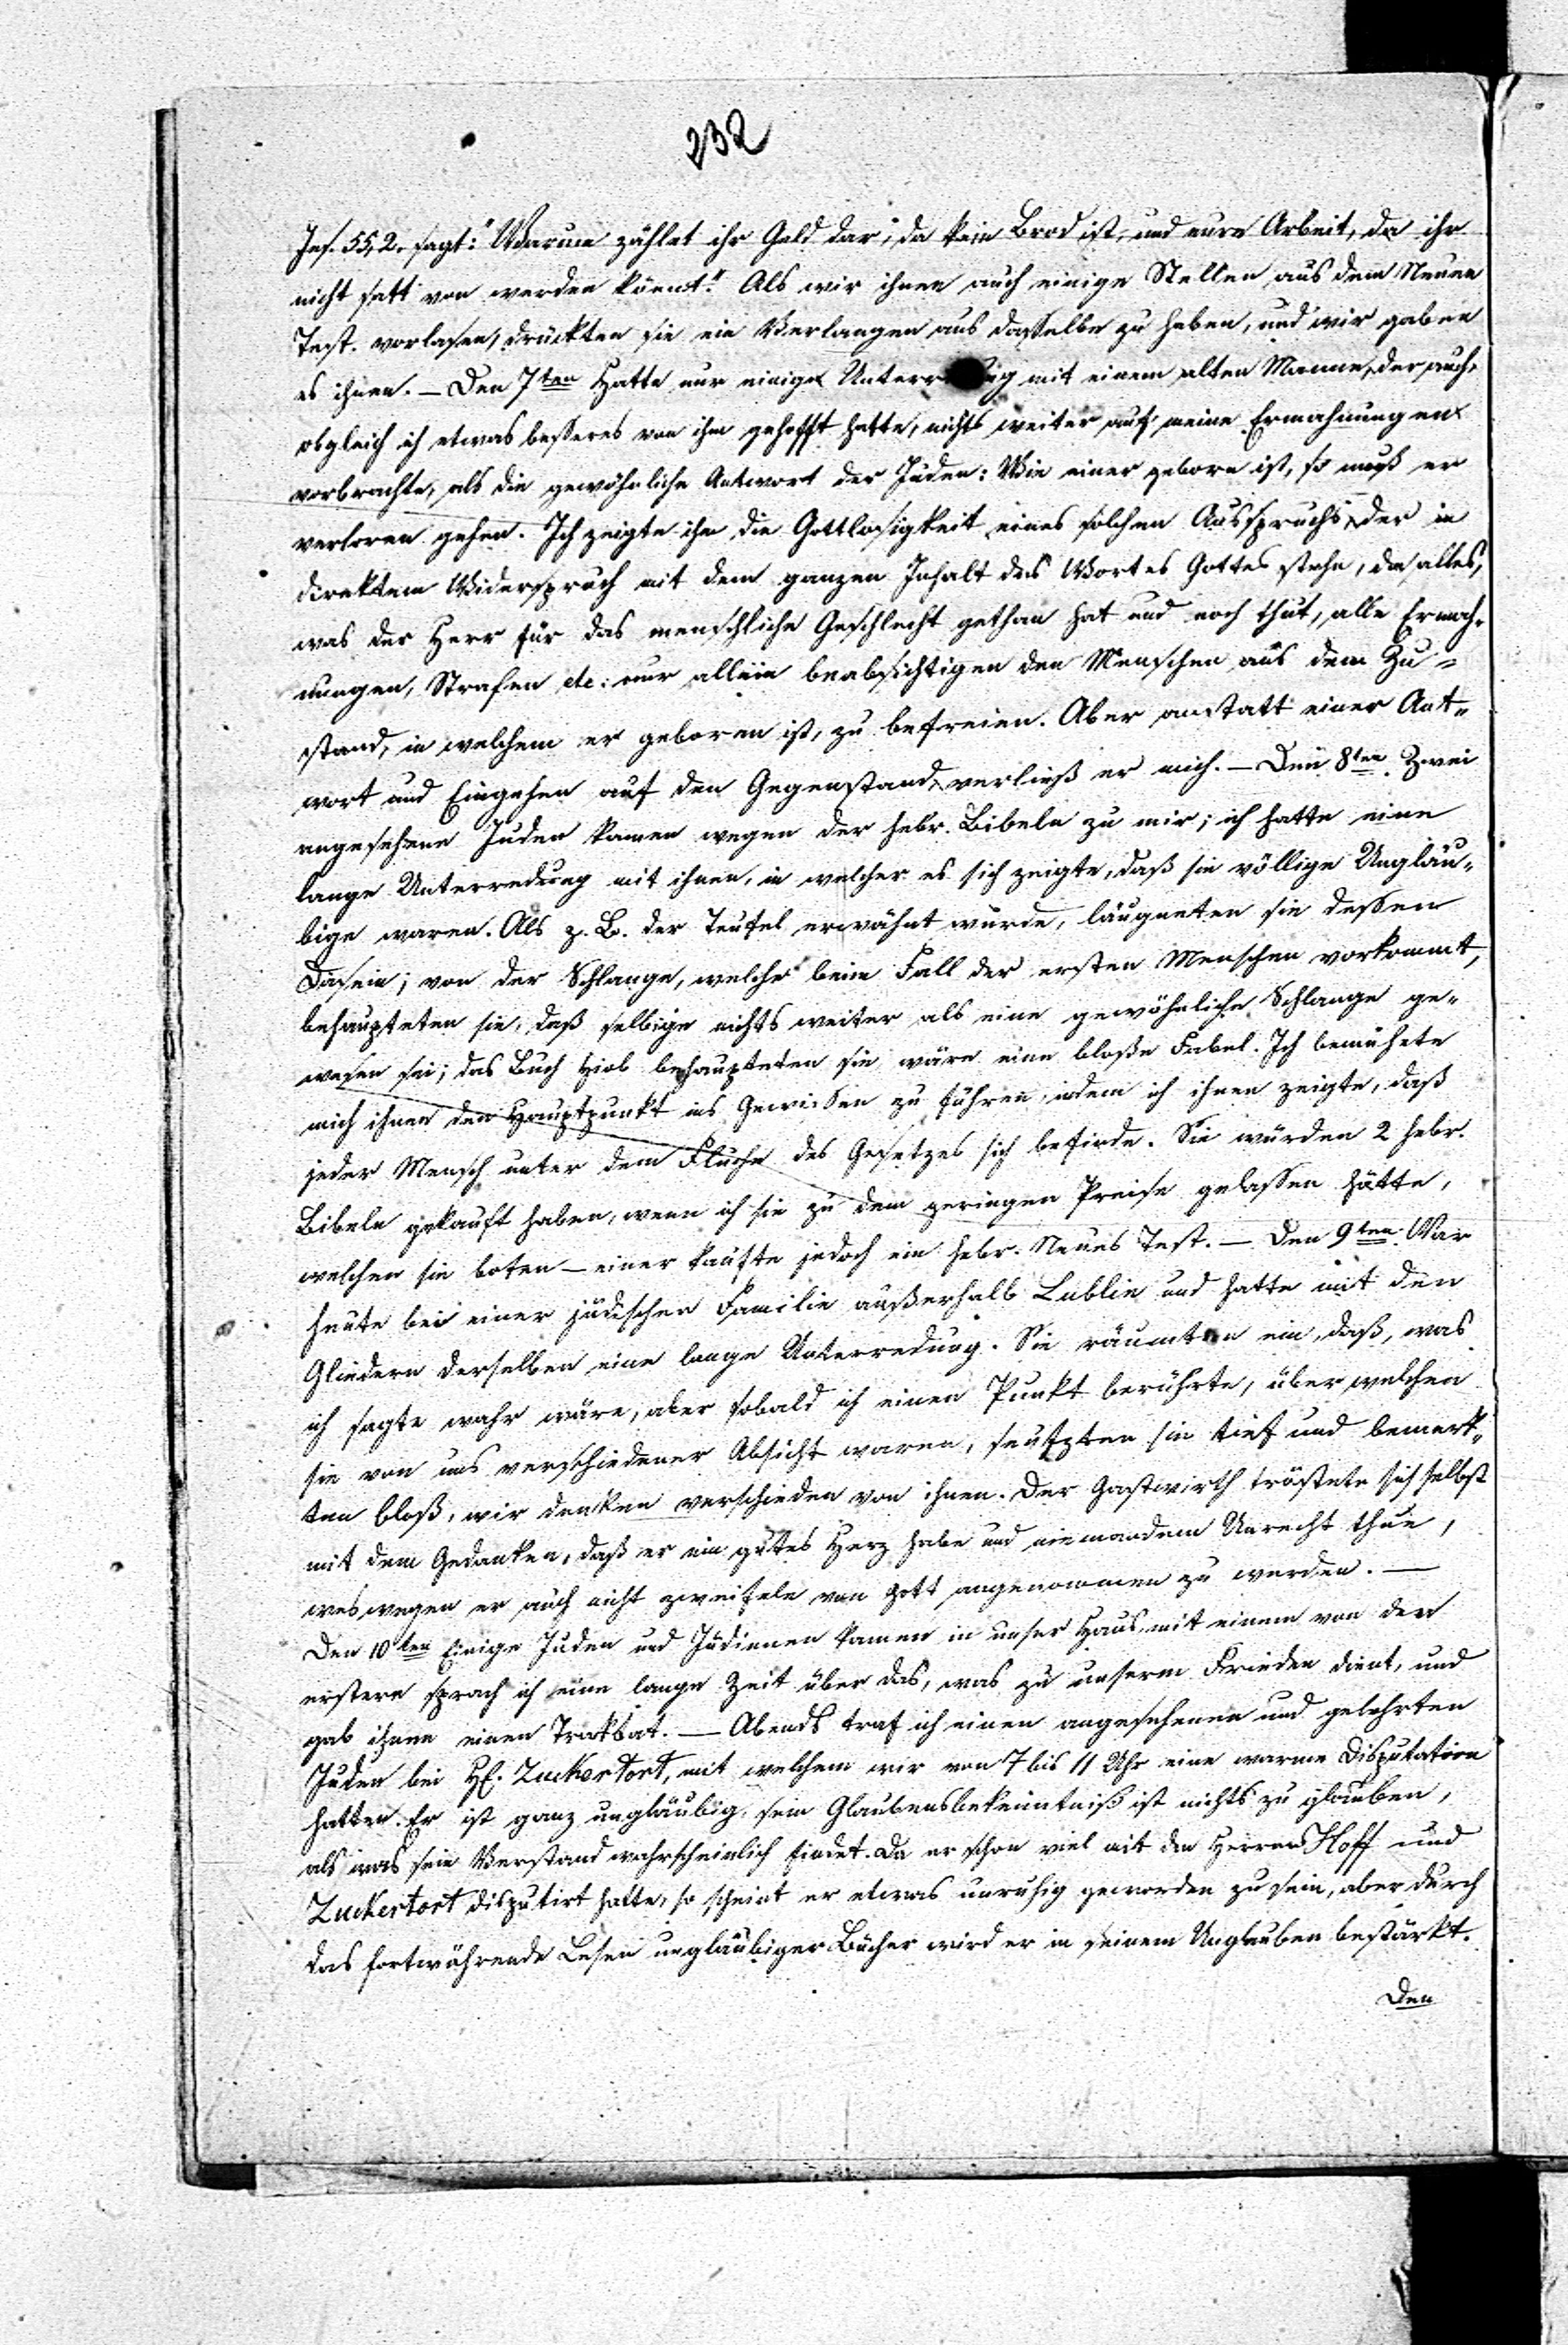 232
Jes. 55,2. sagt: "Warum zählet ihr Geld dar, da kein Brod ist, und eure Arbeit, da ihr
nicht satt von werden könnt." Als wir ihnen auch einige Stellen aus dem Neuen
Test. vorlasen, drückten sie ein Verlangen aus dasselbe zu haben, und wir gaben
es ihnen. — Den 7ten Hatte nur einige mit einem alten Manne, der auch,
obgleich ich etwas besseres von ihm gehofft hatte, nichts weiter auf meine Ermahnungen
vorbrachte, als die gewöhnliche Antwort der Juden: Wie einer geboren ist, so muß er
verloren gehen. Ich zeigte ihm die Gottlosigkeit eines solchen Ausspruchs, der in
direktem Widerspruch mit dem ganzen Inhalt des Wortes Gottes stehe, da alles,
was der Herr für das menschliche Geschlecht gethan hat und noch thut, alle Ermah-
nungen, Strafen etc: nur allein beabsichtigen den Menschen aus dem Zu-
stand, in welchem er geboren ist, zu befreien. Aber anstatt einer Ant-
wort und Eingehen auf den Gegenstand, verließ er mich. — Den 8ten Zwei
angesehene Juden kamen wegen der hebr. Bibeln zu mir; ich hatte eine
lange Unterredung mit ihnen, in welcher es sich zeigte, daß sie völlige Ungläu-
bige waren. Als z. B. der Teufel erwähnt wurde, läugneten sie dessen
Dasein; von der Schlange, welche beim Fall der ersten Menschen vorkommt,
behaupteten sie, daß selbige nichts weiter als eine gewöhnliche Schlange ge-
wesen sei; das Buch Hiob behaupteten sie wäre eine bloße Fabel. Ich bemühete
mich ihnen den Hauptpunkt ins Gewissen zu führen, indem ich ihnen zeigte, daß
jeder Mensch unter dem Fluche des Gesetzes sich befinde. Sie würden 2 hebr.
Bibeln gekauft haben, wenn ich sie zu dem geringen Preise gelassen hätte,
welchen sie boten — einer kaufte jedoch ein hebr. Neues Test. — Den 9ten War
heute bei einer jüdischen Familie außerhalb Lublin und hatte mit den
Gliedern derselben eine lange Unterredung. Sie räumten ein, daß, was
ich sagte wahr wäre, aber sobald ich einen Punkt berührte, über welchen
sie von uns verschiedener Absicht waren, seufzten sie tief und bemerk-
ten bloß, wir denken verschieden von ihnen. Der Gastwirth tröstete sich selbst
mit dem Gedanken, daß er ein gutes Herz habe und niemandem Unrecht thue,
weswegen er auch nicht zweifele von Gott angenommen zu werden. —
Den 10ten Einige Juden und Jüdinnen kamen in unser Haus, mit einem von den
erstern sprach ich eine lange Zeit über das, was zu unserm Frieden dient, und
gab ihnen einen Traktat. — Abends traf ich einen angesehenen und gelehrten
Juden bei H. Zuckertort, mit welchem wir von 7 bis 11 Uhr eine warme Disputation
hatten. Er ist ganz ungläubig, sein Glaubensbekenntniß ist nichts zu glauben,
als was sein Verstand wahrscheinlich findet. Da er schon viel mit den Herren Hoff und
Zuckertort disputirt hatte, so scheint er etwas unruhig geworden zu sein, aber durch
das fortwährende Lesen ungläubiger Bücher wird er in seinem Unglauben bestärkt.
Den